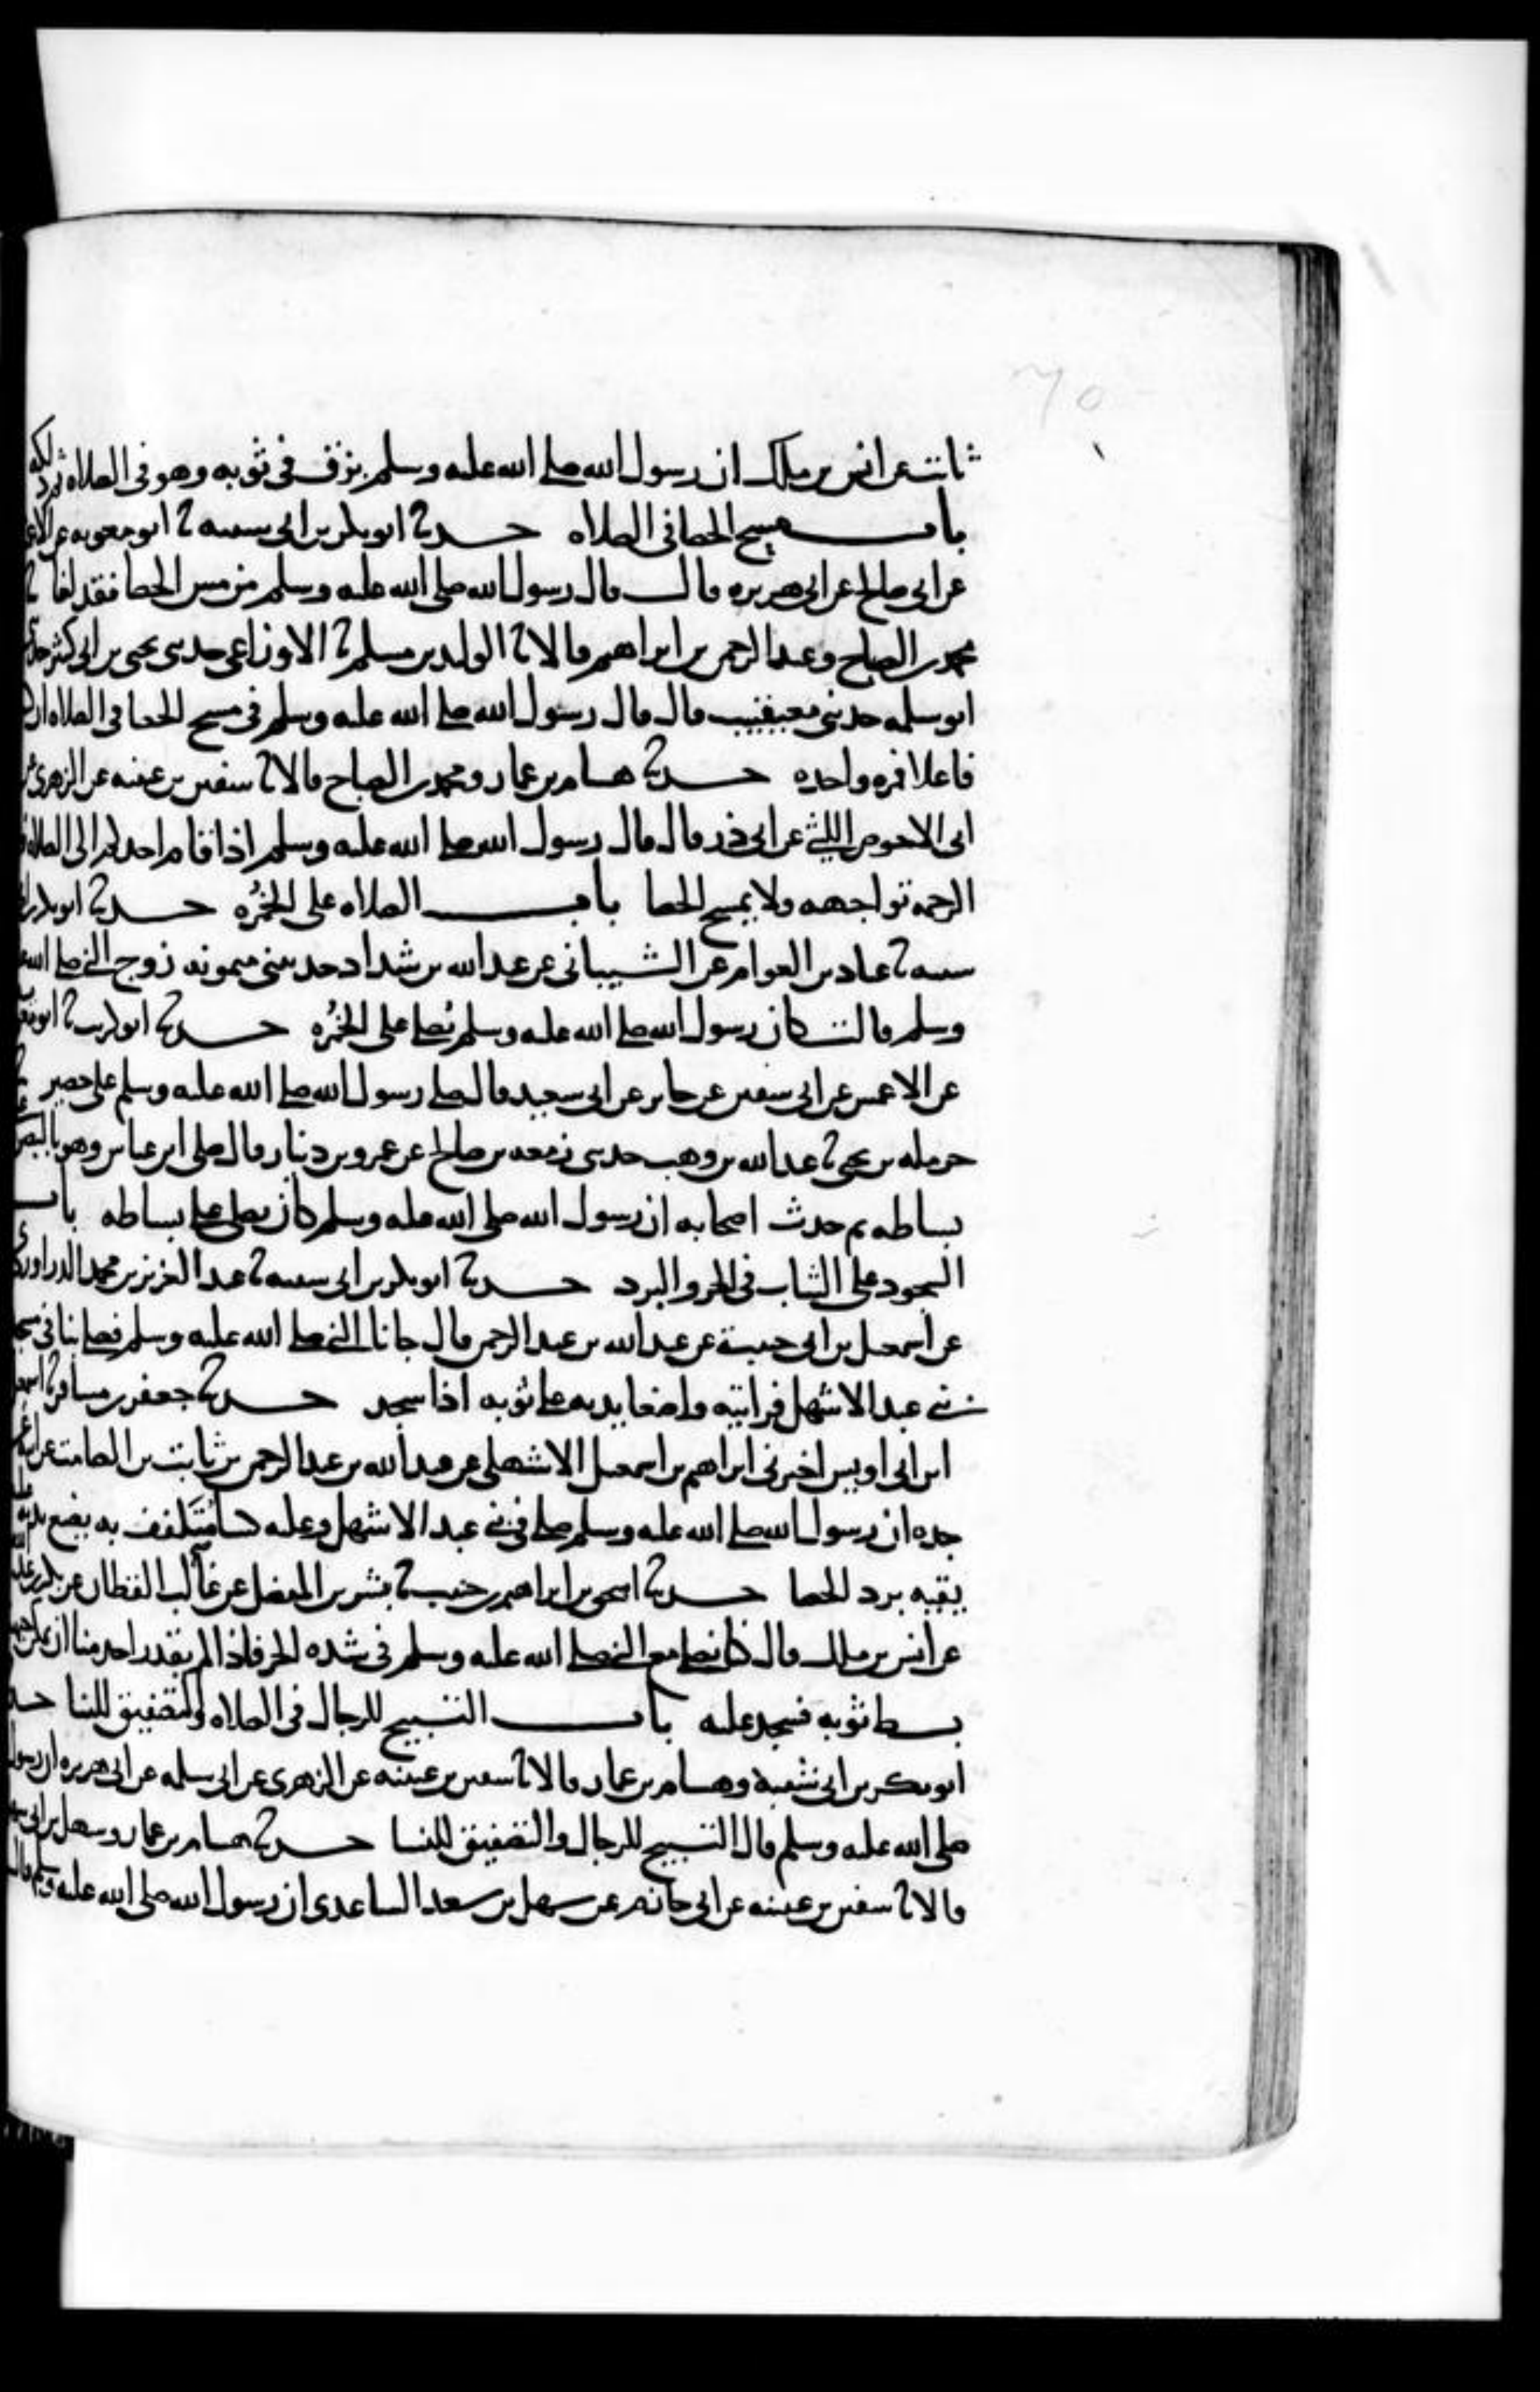 ثابت عن انس بن ملك ان رسول الله صلى الله عليه وسلم بزق في ثوبه وهو في الصلاه ثم دلكه
باب مسح الحصا في الصلاه حدثنا ابو بكر بن ابي شيبه ثنا ابو معويه عن
عن ابي صالح عن ابي هريره قال قال رسول الله صلى الله عليه وسلم من مس الحصا فقد لغا ثنا
محمد بن الصباح وعبد الرحمن بن ابراهيم قالا ثنا الوليد بن مسلم ثنا الاوزاعي حدثني يحيى بن ابي كثير
ابو سلمه حدثني معيقيب قال قال رسول الله صلى الله عليه وسلم في مسح الحصا في الصلاه ان
فاعلا فمره واحده حدثنا هشام بن عمار ومحمد بن الصباح قالا ثنا سفين بن عيينه عن الزهري عن
ابي الاحوص الليثي عن ابي ذر قال قال رسول الله صلى الله عليه وسلم اذا قام احدكم الى الصلاه
الرحمه تواجهه ولا يمسح الحصا باب الصلاه على الخُمُره حدثنا ابو بكر بن
شيبه ثنا عباد بن العوام عن الشيباني عن عبد الله بن شداد حدثتني ميمونه زوج النبي صلى الله
وسلم قالت كان رسول الله صلى الله عليه وسلم يُصلي على الخُمُره حدثنا ابو كريب ثنا ابو
عن الاعمش عن ابي سفين عن جابر عن ابي سعيد قال صلى رسول الله صلى الله عليه وسلم على حصير
حرمله بن يحيى ثنا عبد الله بن وهب حدثني زمعه بن صالح عن عمرو بن دينار قال صلى ابن عباس وهو
بساطه ثم حدث اصحابه ان رسول الله صلى الله عليه وسلم كان يصلي على بساطه باب
السجود على الثياب في الحر والبرد حدثنا ابو بكر بن ابي شيبه ثنا عبد العزيز بن محمد الدراوردي
عن اسمعيل بن ابي حبيبة عن عبد الله بن عبد الرحمن قال جانا النبي صلى الله عليه وسلم فصلى بنا في
بني عبد الاشهل فرايته واضعا يديه على ثوبه اذا سجد حدثنا جعفر بن مسافر ثنا
ابن ابي اويس اخبرني ابراهيم بن اسمعيل الاشهلي عن عبد الله بن عبد الرحمن بن ثابت بن الصامت عن
جده ان رسول الله صلى الله عليه وسلم صلى في بني عبد الاشهل وعليه كسا مُتَلفف به يضع يديه
يقيه برد الحصا حدثنا اسحق بن ابراهيم بن حبيب ثنا بشر بن المفضل عن غالب القطان عن بكر بن
عن انس بن ملك قال كنا نصلي مع النبي صلى الله عليه وسلم في شده الحر فاذا لم يقدر احد منا ان
بسط ثوبه فسجد عليه باب التسبيح للرجال في الصلاه والتصفيق للنسا
ابو بكر بن ابي شيبة وهشام بن عمار قالا ثنا سفين بن عيينه عن الزهري عن ابي سلمه عن ابي هريره ان رسول
صلى الله عليه وسلم قال التسبيح للرجال والتصفيق للنسا حدثنا هشام بن عمار وسهل بن ابي
قالا ثنا سفين بن عيينه عن ابي حازم عن سهل بن سعد الساعدي ان رسول الله صلى الله عليه وسلم قال